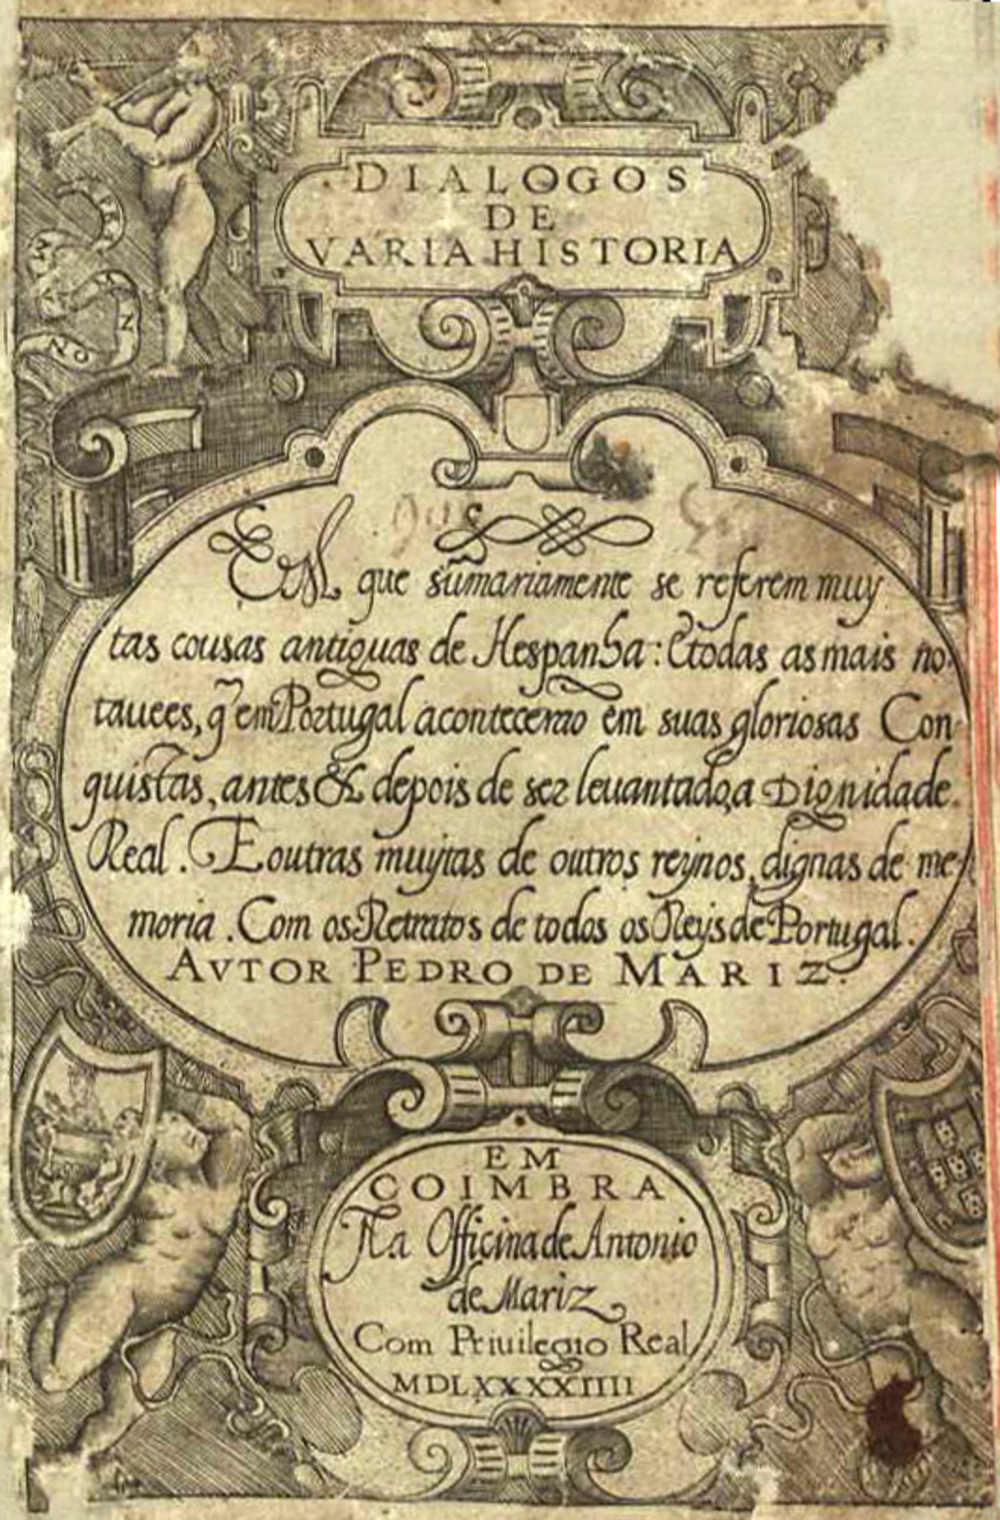 DIALOGOS
DE
VARIA HISTORIA
EM que sũmariamente se referem muy
tas cousas antiguas de Hespanha: E todas as mais no-
tauees, q̃ em Portugal acontecerão em suas gloriosas Con-
quistas, antes & depois de ser leuantado, a Dignidade
Real. E outras muytas de outros reynos, dignas de me-
moria. Com os Retratos de todos os Reys de Portugal.
AVTOR PEDRO DE MARIZ.
EM
COIMBRA
Na Officina de Antonio
de Mariz
Com Priuilegio Real
MDLXXXXIIII